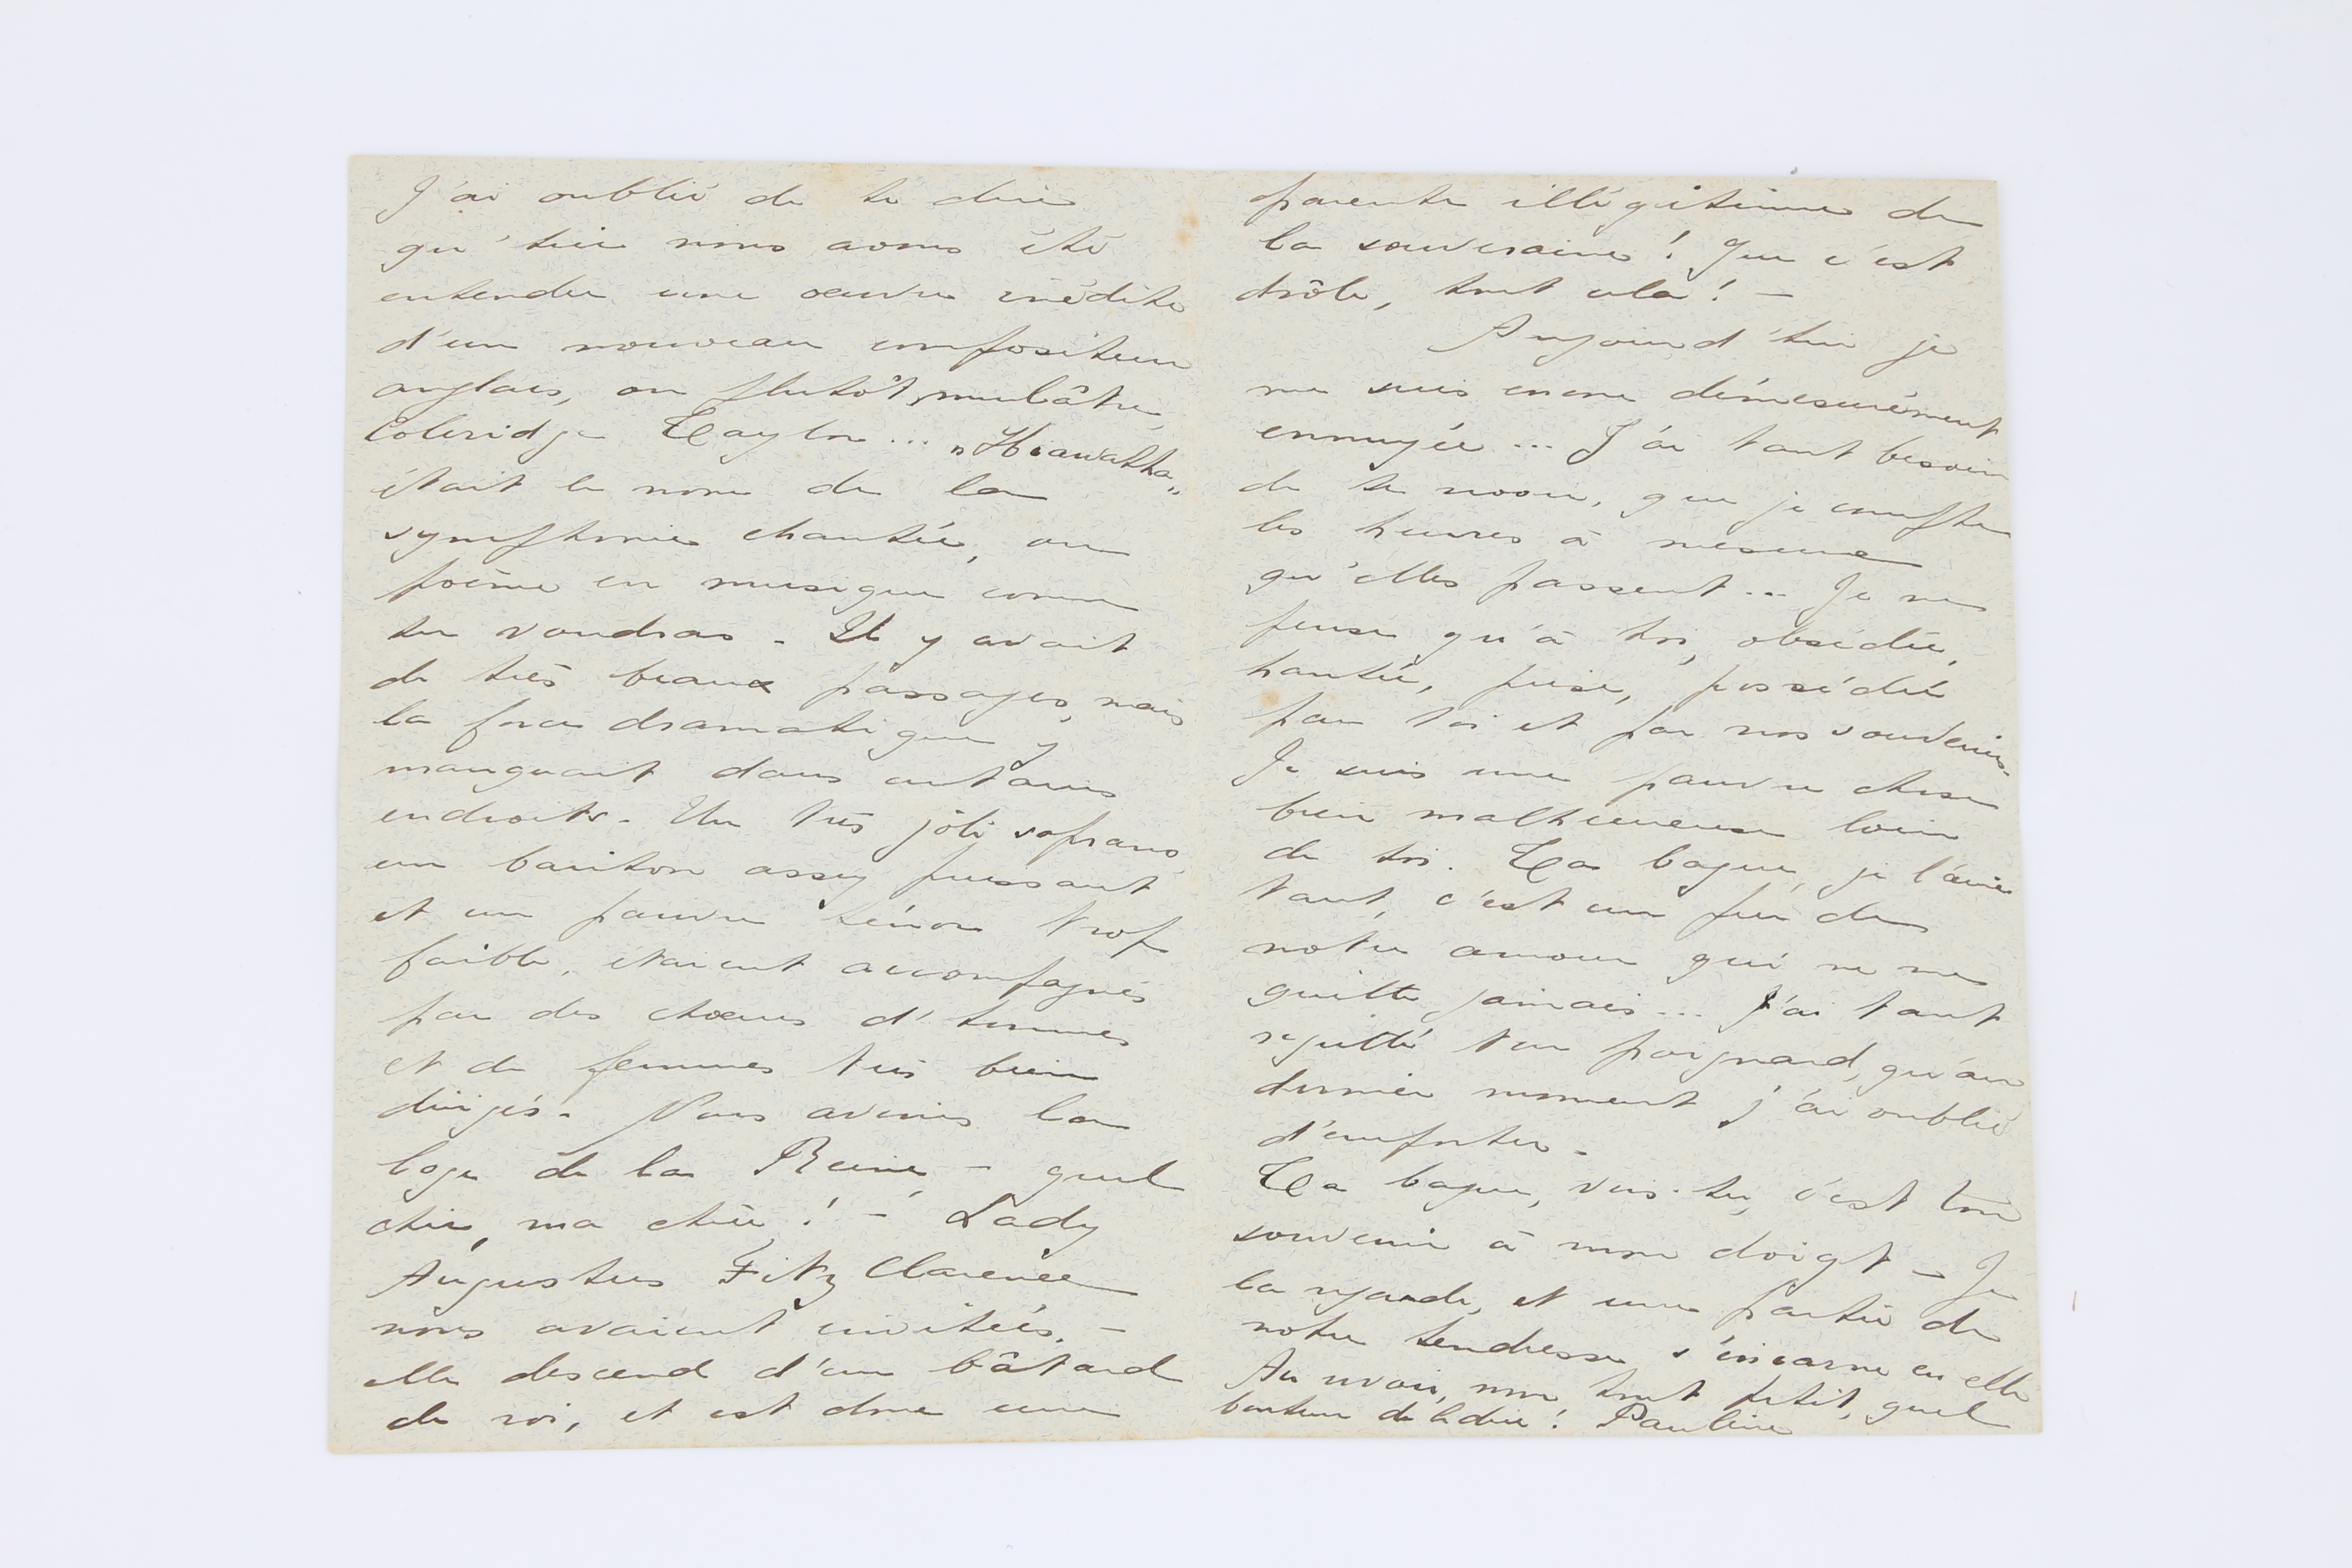 J'ai oublié de te dire
qu'hier nous avons été
entendre une oeuvre inédite
d'un nouveau compositeur
anglais, ou plutôt, mulâtre,
Coleridge Taylor... „Hiawatha„
était le nom de la
symphonie chantée, ou
poème en musique comme
tu voudras - Il y avait
de très beaux passages, mais
la force dramatique y
manquait dans certains
endroits - Un très joli soprano,
un bariton assez puissant
et un pauvre ténor trop
faible, étaient accompagnés
par des choeurs d'hommes
et de femmes très bien
dirigés - Nous avions la
loge de la Reine, - quel
chic, ma chère ! - Lady
Augustus Fitz Clarence
nous avaient invitées. -
elle descend d'un bâtard
de roi, et est donc une
parente illégitime de
la souveraine ! Que c'est
drôle, tout cela ! -
Aujourd'hui je
me suis encore démesurément
ennuyée ... J'ai tant besoin
de te revoir, que je compte
les heures à mesure
qu'elles passent ... Je ne
pense qu'à toi, obsédée,
hantée, prise, possédée
par toi et par nos souvenirs -
Je suis une pauvre chose
bien malheureuse loin
de toi. Ta bague, je l'aime
tant, c'est un peu de
notre amour qui ne me
quitte jamais ... J'ai tant
regretté ton poignard, qu'au
dernier moment j'ai oublié
d'emporter -
Ta bague, vois-tu, c'est ton
souvenir à mon doigt - Je
la regarde, et une partie de
notre tendresse s'incarne en elle
Au revoir, mon tout petit, quel
bonheur de te dire ! Pauline